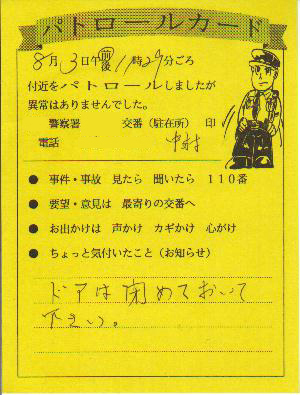 パトロールカード
8月3日午前後11時29分ごろ
付近をパトロールしましたが
異常はありませんでした。
警察署 交番（駐在所） 印
電話 中村
● 事件・事故 見たら 聞いたら 110番
● 要望・意見は 最寄りの交番へ
● お出かけは 声かけ カギかけ 心がけ
● ちょっと気付いたこと（お知らせ）
ドアは閉めておいて
下さい。